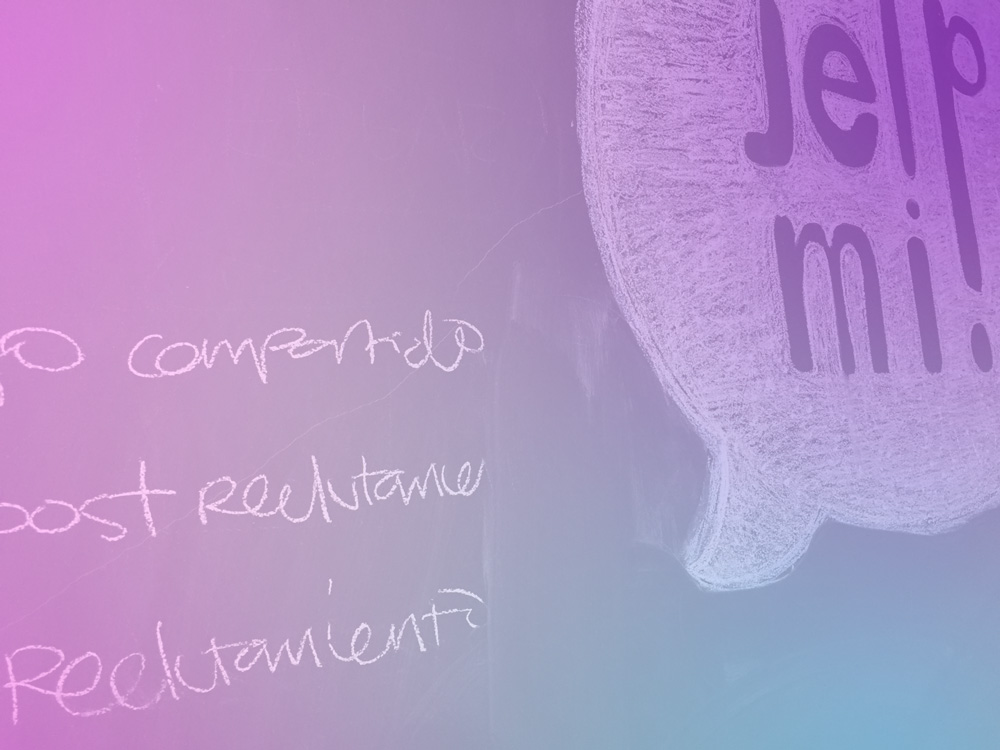 go compartido
post Reclutamie
Reclutamiento
Jelp
mi!